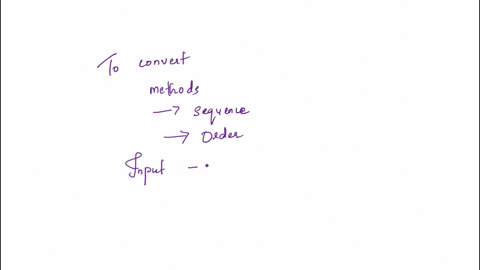 To convert
methods
→ sequence
→ Order
Input -